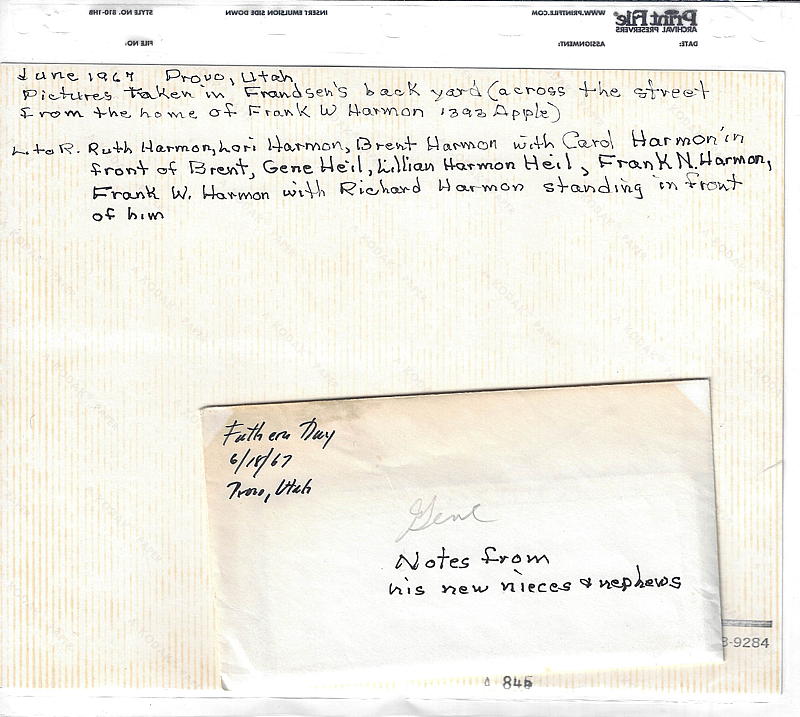 STYLE NO. 810-1HB
INSERT EMULSION SIDE DOWN
WWW.PRINTFILE.COM
Print File
ARCHIVAL PRESERVERS
FILE NO:
ASSIGNMENT:
DATE:
June 1967 Provo, Utah
Pictures taken in Frandsen's back yard (across the street
from the home of Frank W Harmon 1393 Apple)
L to R. Ruth Harmon, Lori Harmon, Brent Harmon with Carol Harmon in
front of Brent, Gene Heil, Lillian Harmon Heil, Frank N. Harmon,
Frank W. Harmon with Richard Harmon standing in front
of him
A KODAK PAPER
Fathers Day
6/18/67
Provo, Utah
Gene
Notes from
his new nieces & nephews
3-9284
846